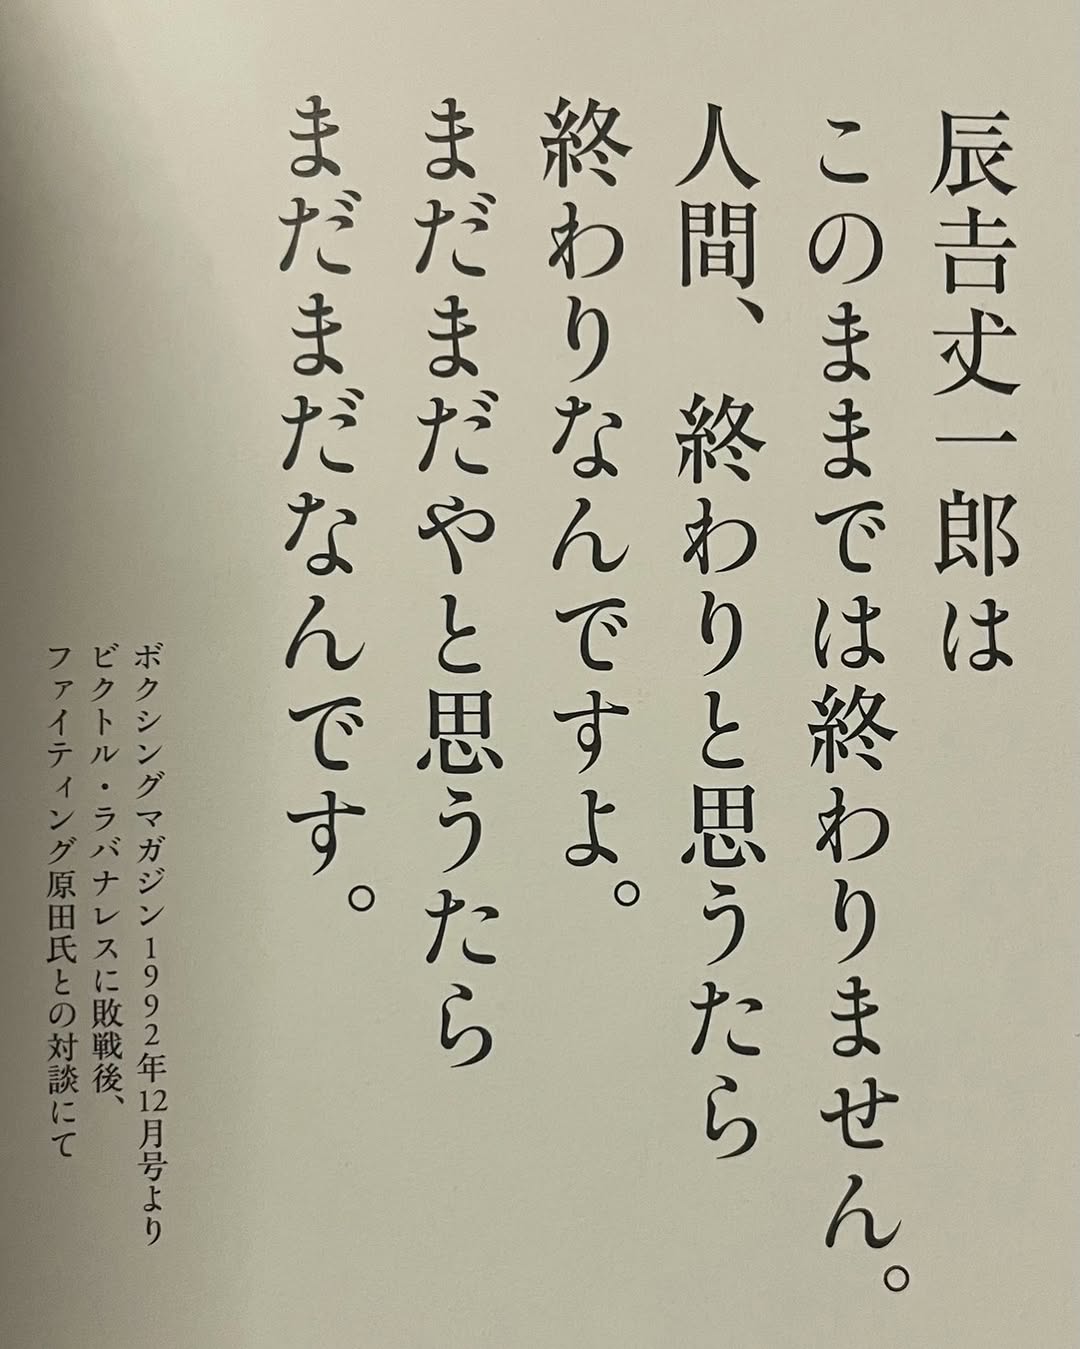 辰𠮷丈一郎は
このままでは終わりません。
人間、終わりと思うたら
終わりなんですよ。
まだまだやと思うたら
まだまだなんです。
ボクシングマガジン1992年12月号より
ビクトル・ラバナレスに敗戦後、
ファイティング原田氏との対談にて